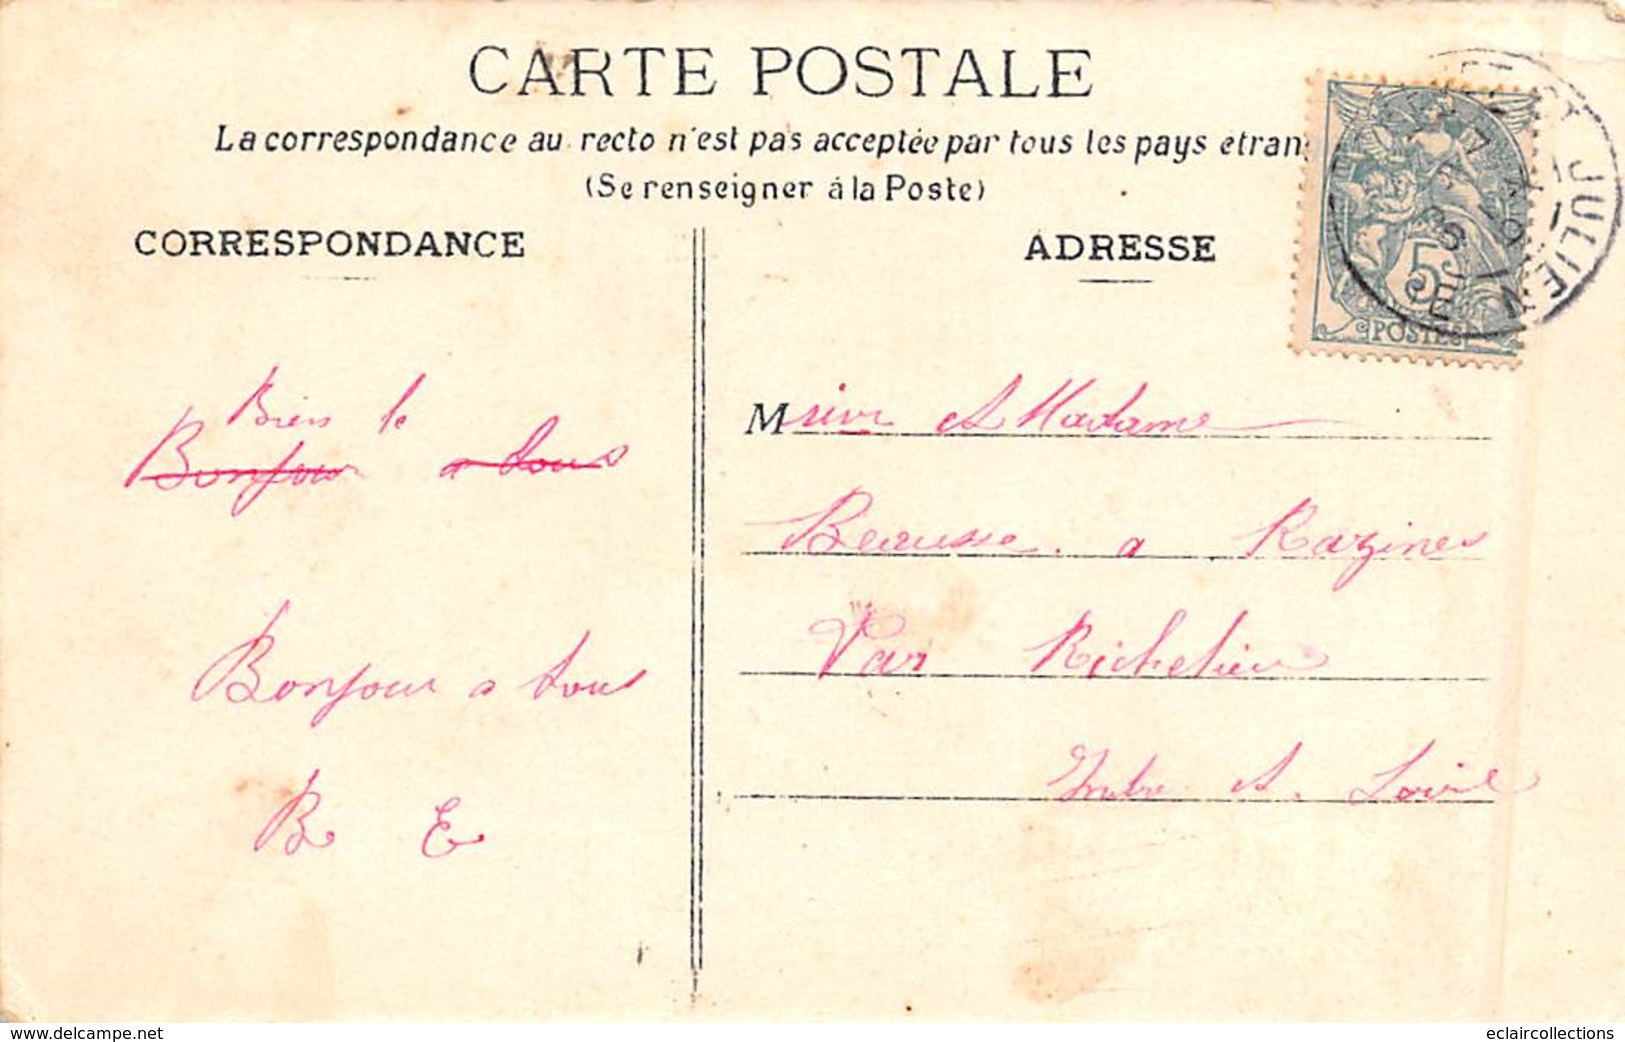 CARTE POSTALE
La correspondance au recto n'est pas acceptée par tous les pays étran
(Se renseigner à la Poste)
CORRESPONDANCE
Bien le
Bonjour a tous
Bonjour a tous
B E
ADRESSE
Msieur et Madame
Beausse a Razines
Par Richelieu
Indre et Loire
5
POSTES
JULIEN
www.delcampe.net
eclaircollections